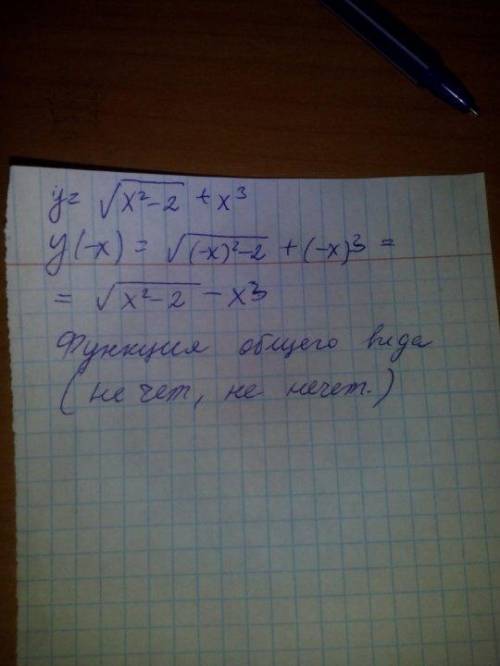 y = √(x²-2) + x³
y(-x) = √((-x)²-2) + (-x)³ =
= √(x²-2) - x³
Функция общего вида
(не чет, не нечет.)